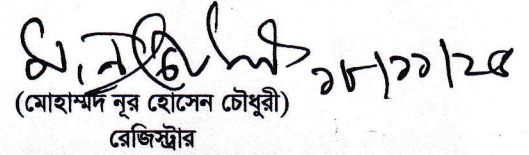 ১৮/১১/২৪
(মোহাম্মদ নূর হোসেন চৌধুরী)
রেজিস্ট্রার